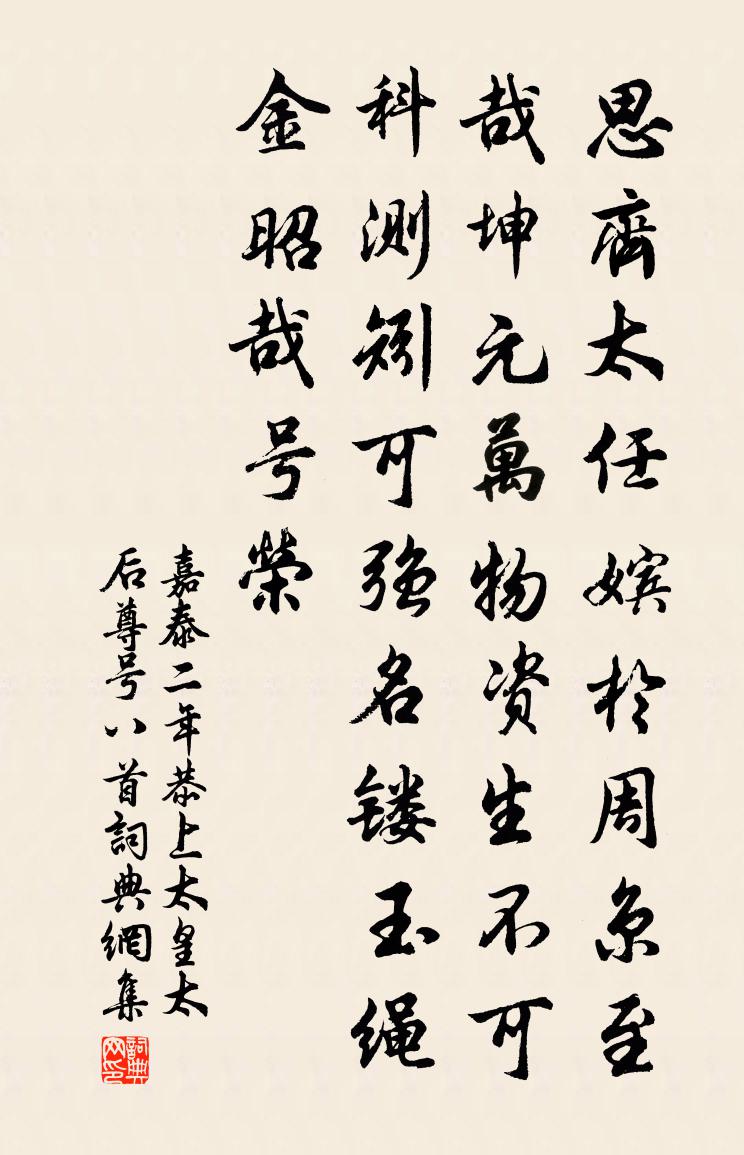 思齊太任嫔於周京至
哉坤元萬物资生不可
科测矧可强名镂玉绳
金昭哉号榮
嘉泰二年恭上太皇太
后尊号八首詞典網集
詞典网印